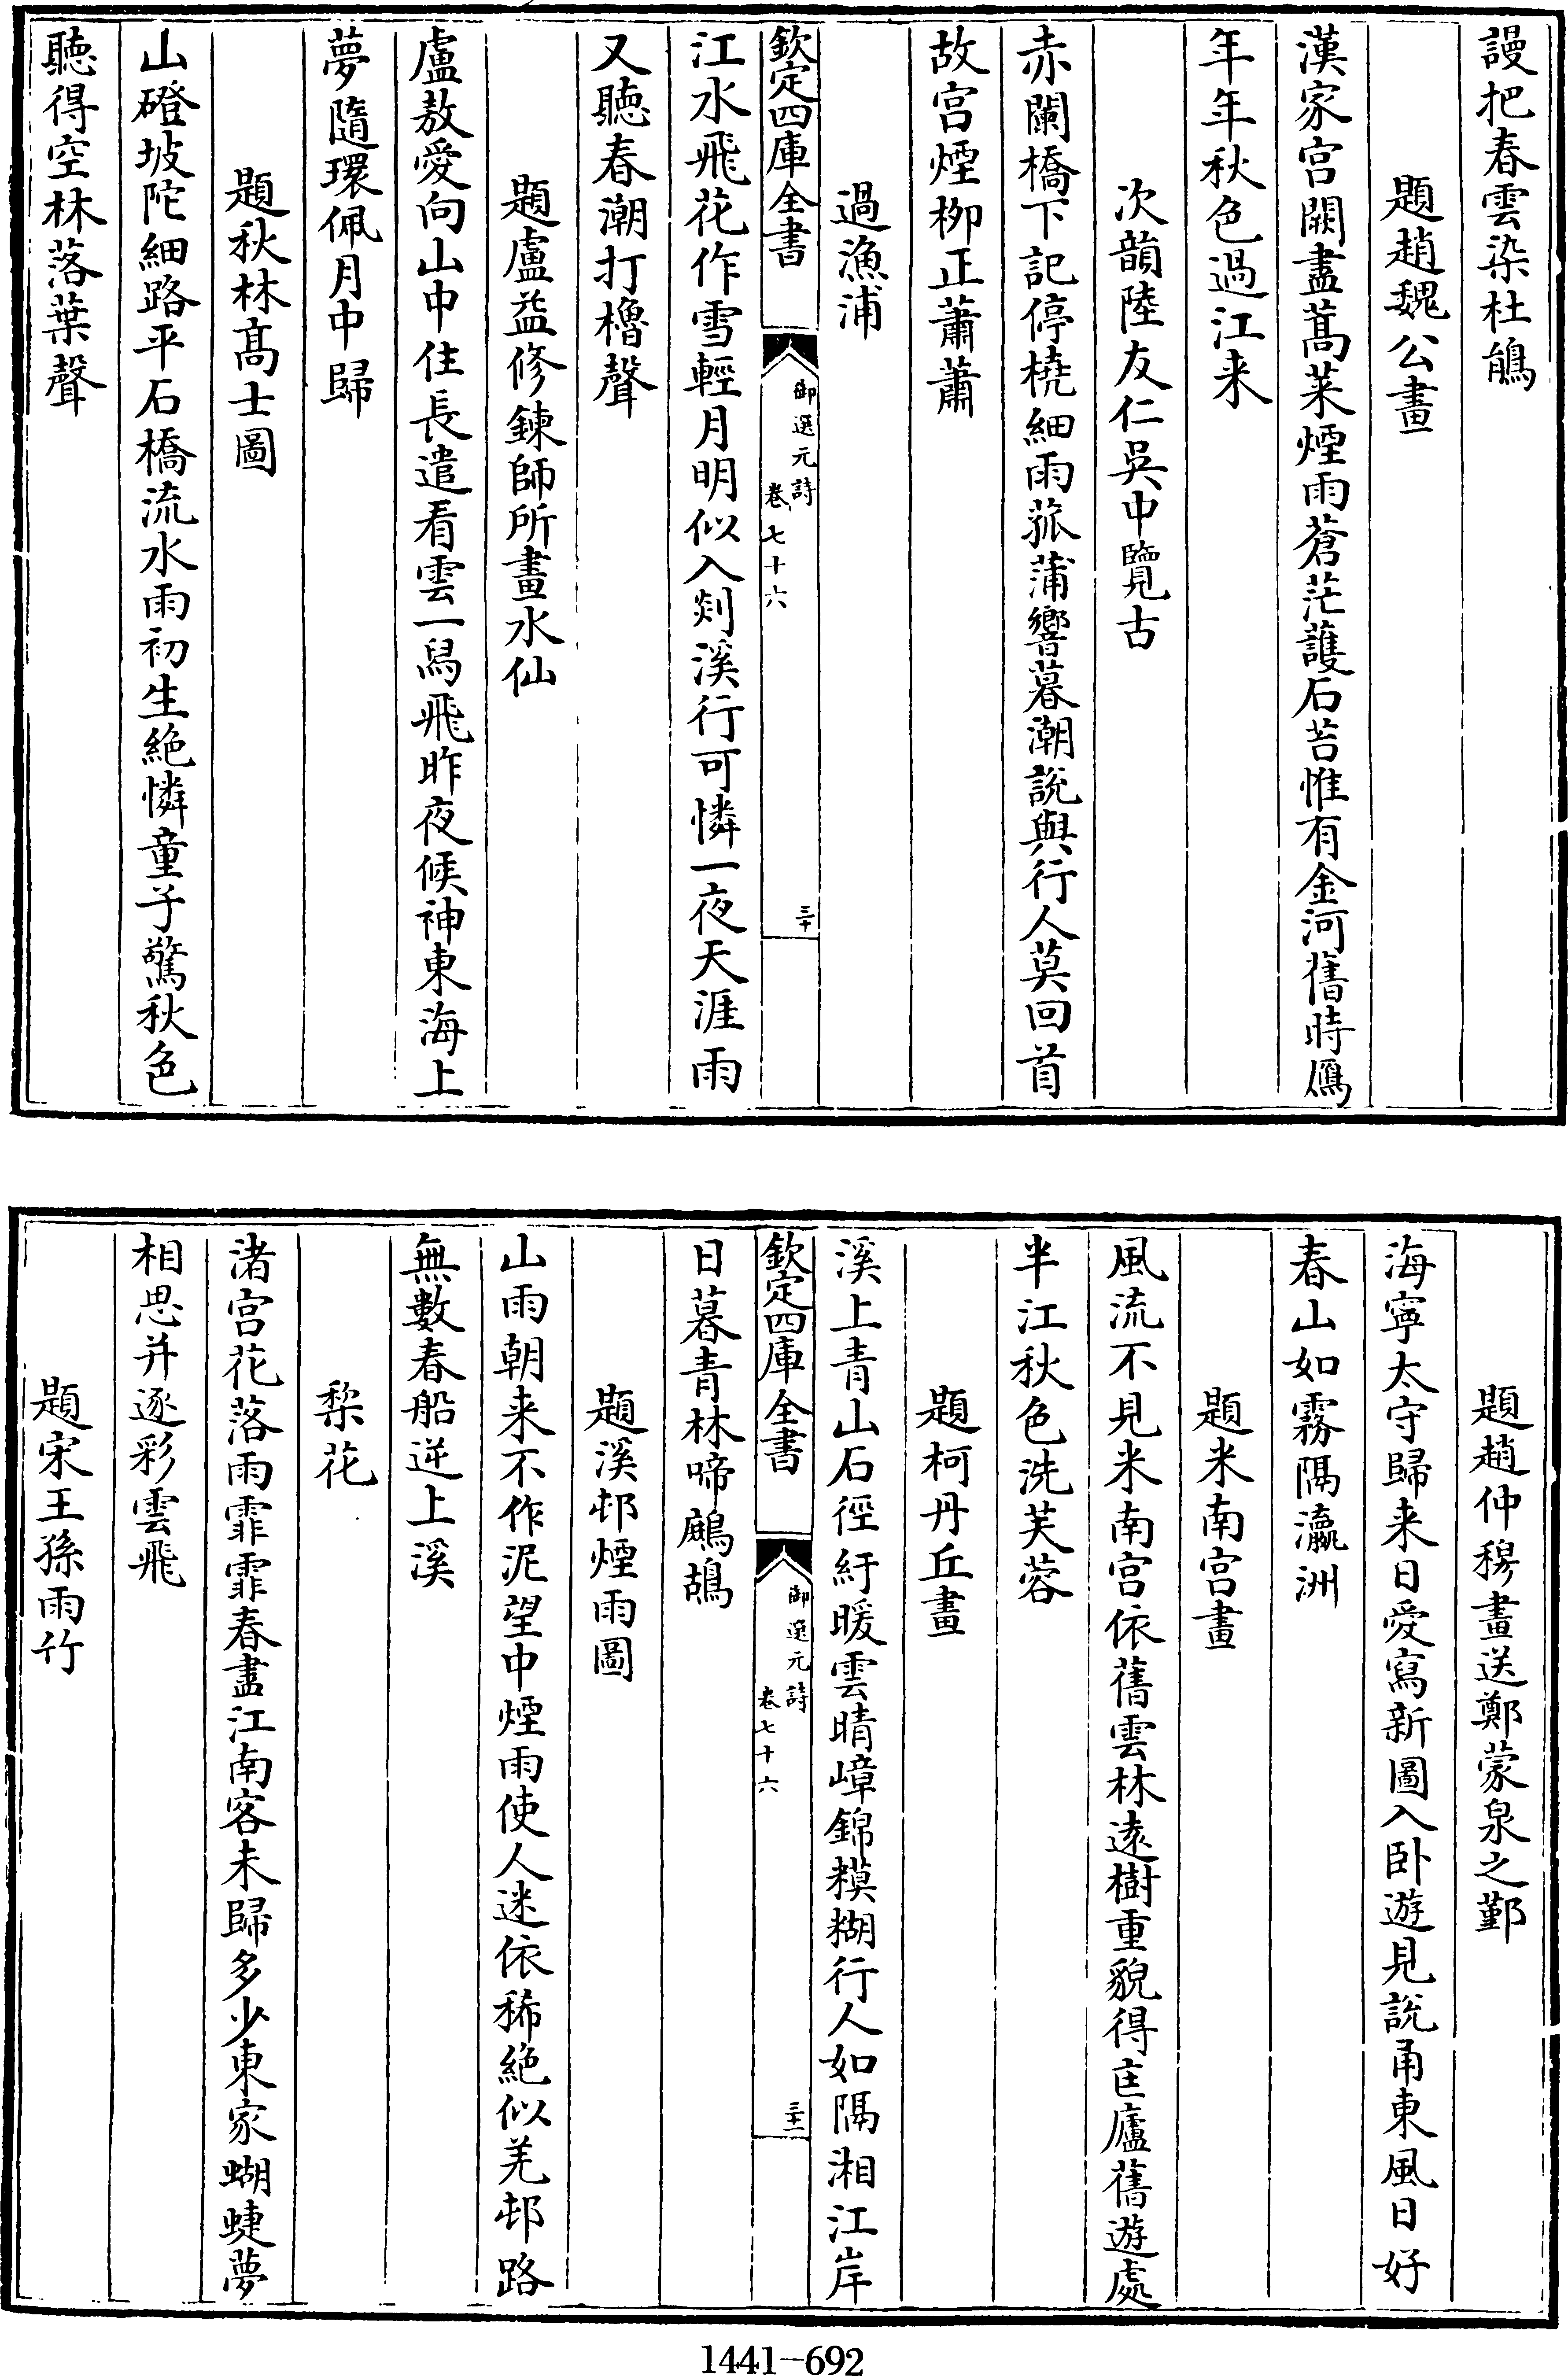 謾把春雲染杜鵑
題趙魏公畫
漢家宫闕盡蒿萊煙雨蒼茫護石苔惟有金河舊時鴈
年年秋色過江来
次韻陸友仁吳中覽古
赤闌橋下記停橈細雨菰蒲響暮潮說與行人莫回首
故宫煙栁正蕭蕭
過漁浦
欽定四庫全書
御選元詩
卷七十六
三十
江水飛花作雪輕月明似入剡溪行可憐一夜天涯雨
又聽春潮打櫓聲
題盧益修鍊師所畫水仙
盧敖愛向山中住長遣看雲一舄飛昨夜候神東海上
夢隨環佩月中歸
題秋林髙士圖
山磴坡陀細路平石橋流水雨初生絶憐童子驚秋色
聽得空林落葉聲
題趙仲穆畫送鄭蒙泉之鄞
海寧太守歸来日愛寫新圖入卧遊見說甬東風日好
春山如霧隔瀛洲
題米南宫畫
風流不見米南宫依舊雲林逺樹重貌得匡廬舊遊處
半江秋色洗芙蓉
題柯丹丘畫
溪上青山石徑紆暖雲晴嶂錦糢糊行人如隔湘江岸
欽定四庫全書
御選元詩
卷七十六
三十一
日暮青林啼鷓鴣
題溪邨煙雨圖
山雨朝来不作泥望中煙雨使人迷依稀絶似羌邨路
無數春船逆上溪
棃花
渚宫花落雨霏霏春盡江南客未歸多少東家蝴蜨夢
相思并逐彩雲飛
題宋王孫雨竹
1441-692